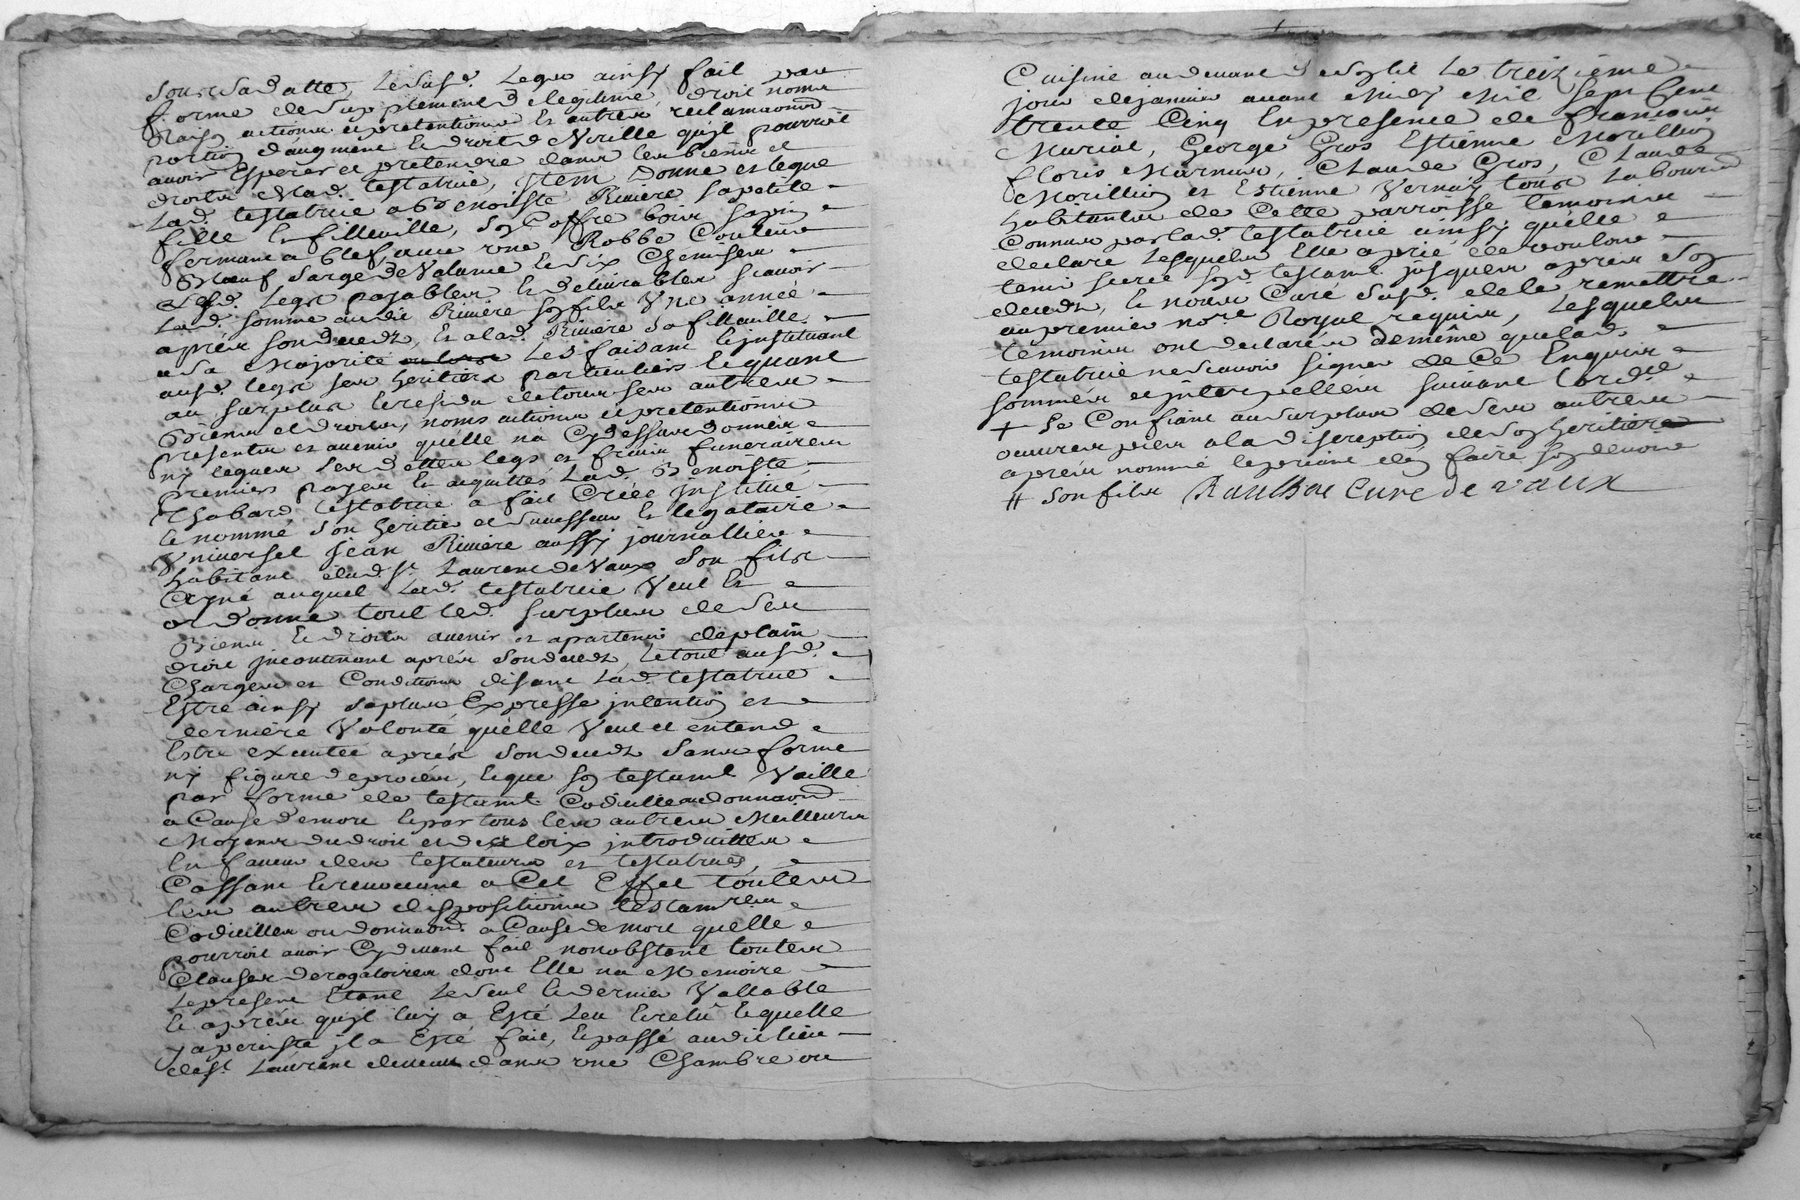 sous sad atte, le susd. legat ainsy fait par
forme de supplement de legitime, droit noms
raisons actions et pretentions et autres reclamations
portion d'augment et droit de Virille qu'il pourroit
avoir Esperer et pretendre dans les biens et
droits de lad. testatrice, Item donne et legue
lad. testatrice a Benoiste Riviere sa petite
fille et filleulle, son Coffre bois sapin
fermant a clef, avec une Robbe Couleur
Bœuf sarge de Valance et six Chemises
Lesd. legs payables et delivrables scavoir
lad. somme audit Riviere son fils Une année
après son deceds, et a lad. Riviere sa filleulle
a sa Majorité Les faisant et instituant
ausd. legs ses heritiers particuliers Et quant
au surplus et residu de tous ses autres
Biens et droits, noms actions et pretentions
presents et avenir quelle na Cydessus donnés
ny legués ses dettes legs et fraix funeraires
premiers payés et acquittés Lad. Benoiste
Chabard testatrice a fait Créée institue
et nommé son heritier et Successeur et legataire
Universel Jean Riviere aussy journallier
habitant dud. St. Laurent de Vaux son fils
Ayné auquel Lad. testatrice Veut Et
ordonne tout led. surplus de ses
Biens et droits avenir et apartenir de plain
droit incontinant après son deceds, le tout ausd.
Charges et Conditions disant Lad. testatrice
Estre ainsy sa plus Expresse intention et
derniere Volonté quelle Veut et entend
Estre executée après son deceds sans forme
ny figure de procès, et que son testamt. Vaille
par forme de testamt. Codicille ou donnaon
a Cause de mort et par tous les autres Meilleurs
Moyens du droit et des loix introduittes
En faveur des testateurs et testatrices,
Cassant et revocant a Cet Effet toutes
les autres dispositions testamres
Codicilles ou donnaon a Cause de mort quelle
pourroit avoir Cydevant fait nonobstant toutes
Clauses derogatoires dont Elle na Memoire
le present Etant le seul et dernier Vallable
Et après qu'il luy a Esté Leu et relu Et quelle
y a persisté il a Esté fait, et passé audit lieu
de St. Laurent devaux dans une Chambre ou
Cuisine au devant de son lit Le treizième
jour de janvier avant Midy Mil Sept Cent
trente Cinq En presence de francois
Murial, George Gros Estienne Morillion
floris Murnas, Claude Gros, Claude
Morillion et Estienne Vernay tous Laboureurs
habitants de Cette parroisse temoins
Connus par lad. testatrice ainsy quelle
declare Lesquels Elle a prié de vouloir
tenir secret son d. testamt. jusques après son
deceds, et nous Curé susd. de le remettre
au premier nore Royal requis, Lesquels
temoins ont declarés de même que lad.
testatrice ne scavoir signer de Ce Enquis
sommés et interpellés suivant l'ordce
+ Se Confiant au surplus de ses autres
œuvres pies a la discreption de son heritier
après nommé le priant d'en faire son devoir
# son fils Curé de vaux